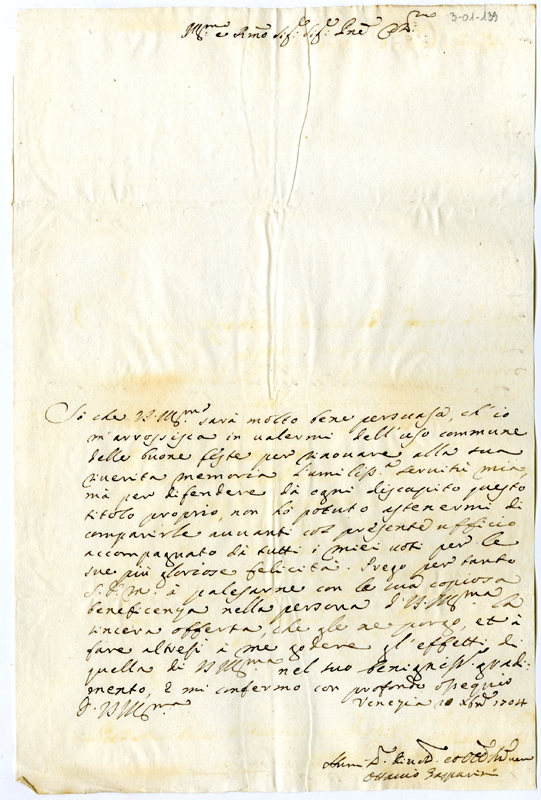 3-01-139
Ill.mo e R.mo Sig.r Sig.r P.ne
Sò che V.S. Ill.ma sarà molto bene persuasa, ch'io
m'arrossisca in valermi dell'uso commune
delle buone feste per rinovare alla sua
riverita memoria l'umiliss.a servitù mia,
mà per difendere dà ogni discapito questo
titolo proprio, non hò potuto astenermi di
comparirle avvanti col presente ufficio
accompagnato dà tutti i miei voti per le
sue più gloriose felicità. Prego per tanto
S.D.M. à palesarne con le sua copiosa
beneficenza nella persona di V.S. Ill.ma la
sincera offerta, che gle ne porgo, et à
fare altresì à me godere gl'effetti di
quella di V.S. Ill.ma nel suo benigniss.o gradi-
mento, e mi confermo con profondo ossequio
D. V.S. Ill.ma Venezia 20 Xbre 1704
Ottavio Gasparini